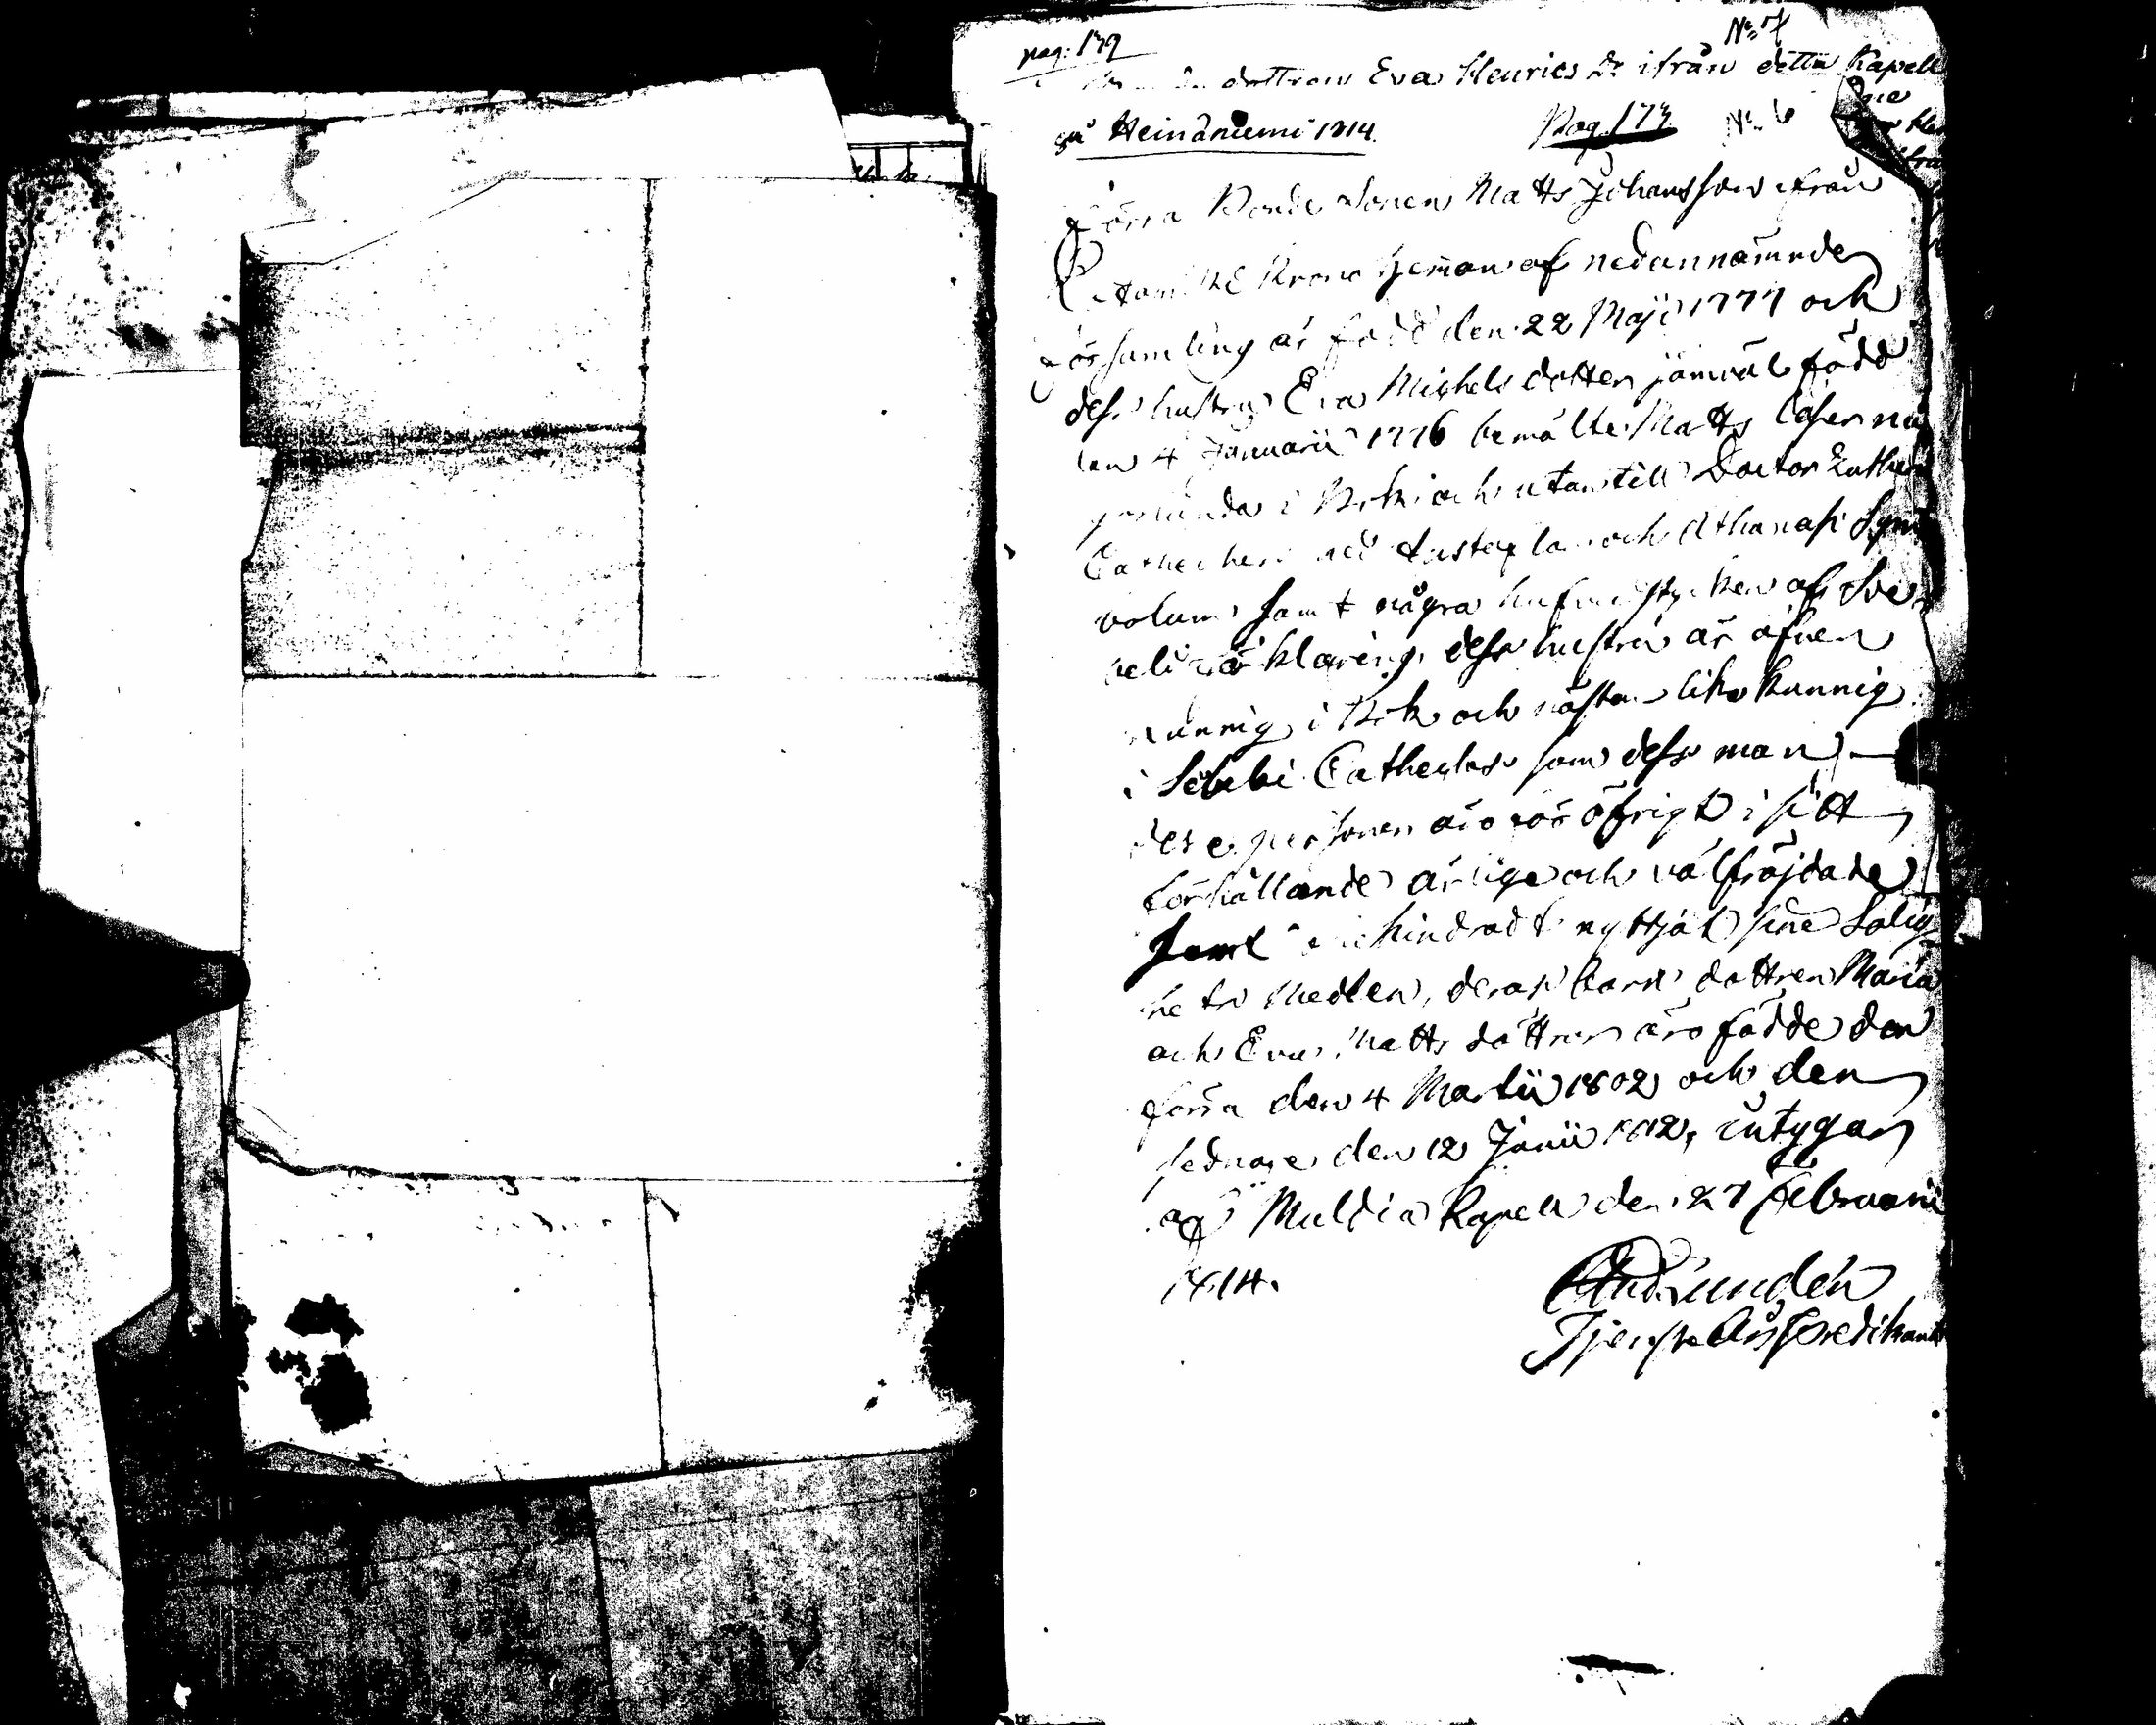 pag: 179
No 7
dottren Eva Henrics Dr ifrån detta Kapell
på Heinäniemi 1814.
Pag. 173 No 6
Förra Bonde Sonen Matts Johansson ifrån
Krono Hemman af nedannämnde
församling är född den 22 Maji 1777 och
dess hustru Eva Michels dotter jämväl född
den 4 Januarii 1776 bemälte Matts läser nå
gorlunda i Bok och utantill Doctor Luthers
Catheches med hustaflan och Athanasi Sym
volum samt några hufvudstycken af Sve
belii förklaring, dess hustru är äfven
kunnig i Bok och nästan lika kunnig
i Sebelii Catheches som dess man,
desse personer äro för öfrigt i sitt
förhållande ärlige och välfräjdade
samt ohindradt nyttjat sine Salig
hets Medlen, deras barn döttren Maria
och Eva Matts döttrar äro födde den
förra den 4 Martii 1802 och den
sednare den 12 Junii 1812, intygar
af Muldia Kapell den 27 Februarii
1814.
And. Lundén
Tjenste Års Predikant